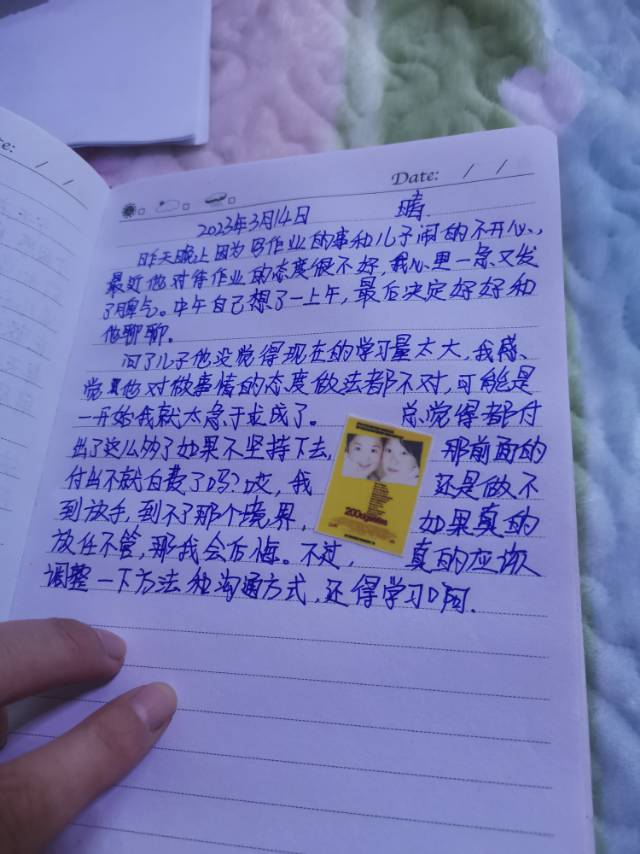 Date: / /
te: / /
2023年3月14日 晴
昨天晚上因为写作业的事和儿子闹的不开心,
最近他对待作业的态度很不好,我心里一急又发
了脾气。中午自己想了一上午,最后决定好好和
他聊聊。
问了儿子他没觉得现在的学习量太大,我感
觉是他对做事情的态度做法都不对,可能是
一开始我就太急于求成了。 总觉得都付
出了这么够了如果不坚持下去, 那前面的
付出不就白费了吗?哎,我 还是做不
到放手,到不了那个境界, 如果真的
放任不管,那我会后悔。不过, 真的应该
调整一下方法和沟通方式,还得学习啊.
200